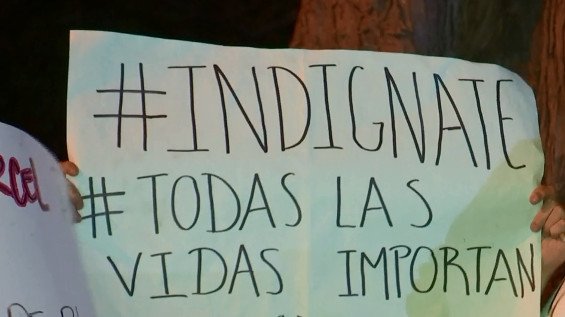 #INDIGNATE
#TODAS LAS
VIDAS IMPORTAN